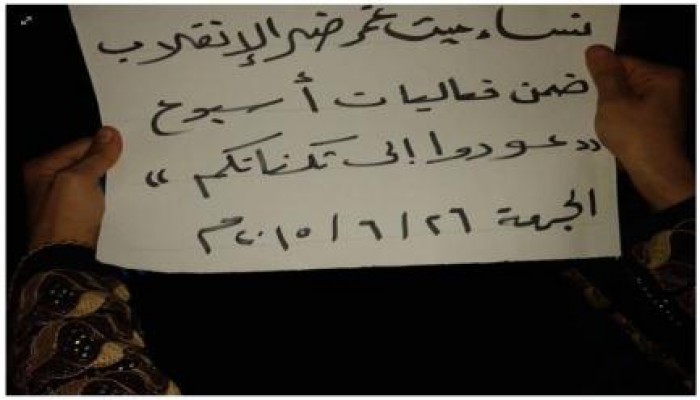 نساء ميت غمر ضد الإنقلاب
ضمن فعاليات أسبوع
«عودوا إلى ثكناتكم»
الجمعة ٢٦ / ٦ / ٢٠١٥م